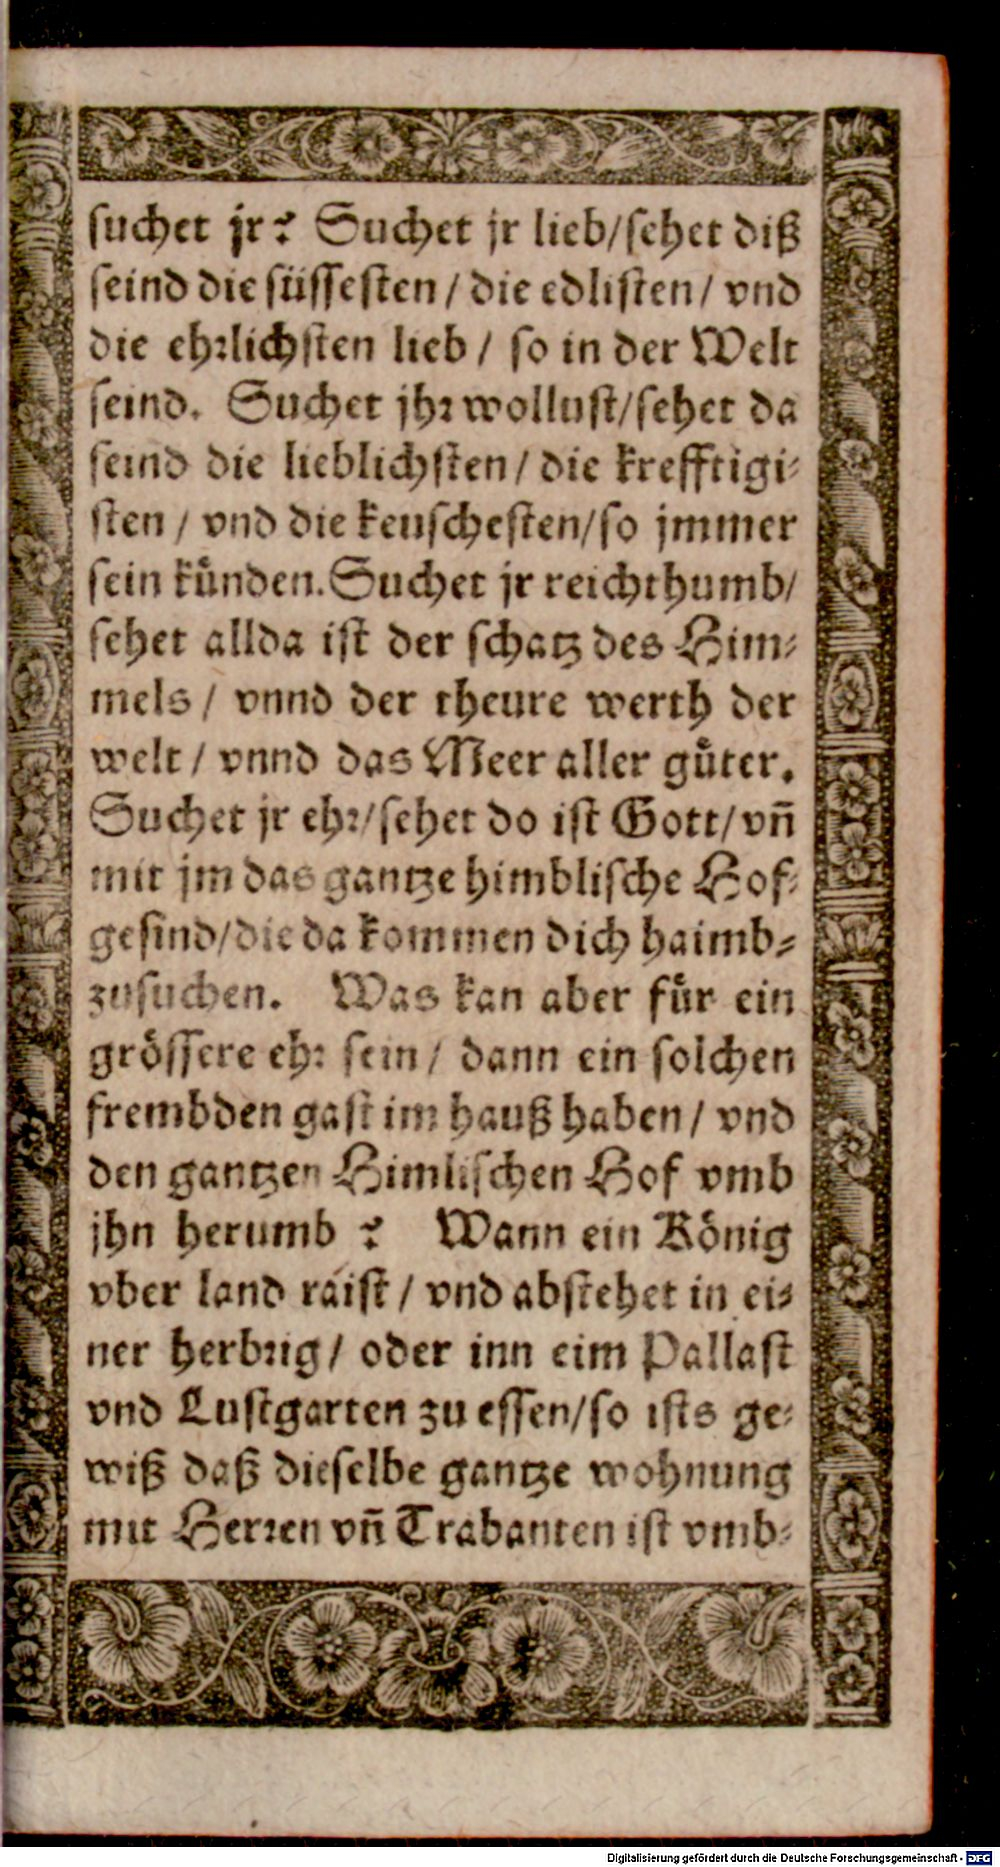 suchet jr? Suchet jr lieb/sehet diß
seind die süssesten / die edlisten / vnd
die ehrlichsten lieb / so in der Welt
seind. Suchet jhr wollust/sehet da
seind die lieblichsten / die krefftigi⸗
sten / vnd die keuschesten/so jmmer
sein kůnden. Suchet jr reichthumb/
sehet allda ist der schatz des Him⸗
mels / vnnd der theure werth der
welt / vnnd das Meer aller gůter.
Suchet jr ehr/sehet do ist Gott/ vñ
mit jm das gantze himblische Hof⸗
gesind/die da kommen dich haimb⸗
zusuchen. Was kan aber fůr ein
grössere ehr sein / dann ein solchen
frembden gast im hauß haben / vnd
den gantzen Himlischen Hof vmb
jhn herumb ? Wann ein König
vber land raist / vnd abstehet in ei⸗
ner herbrig / oder inn eim Pallast
vnd Lustgarten zu essen/so ists ge⸗
wiß daß dieselbe gantze wohnung
mit Herren vñ Trabanten ist vmb⸗
Digitalisierung gefördert durch die Deutsche Forschungsgemeinschaft - DFG